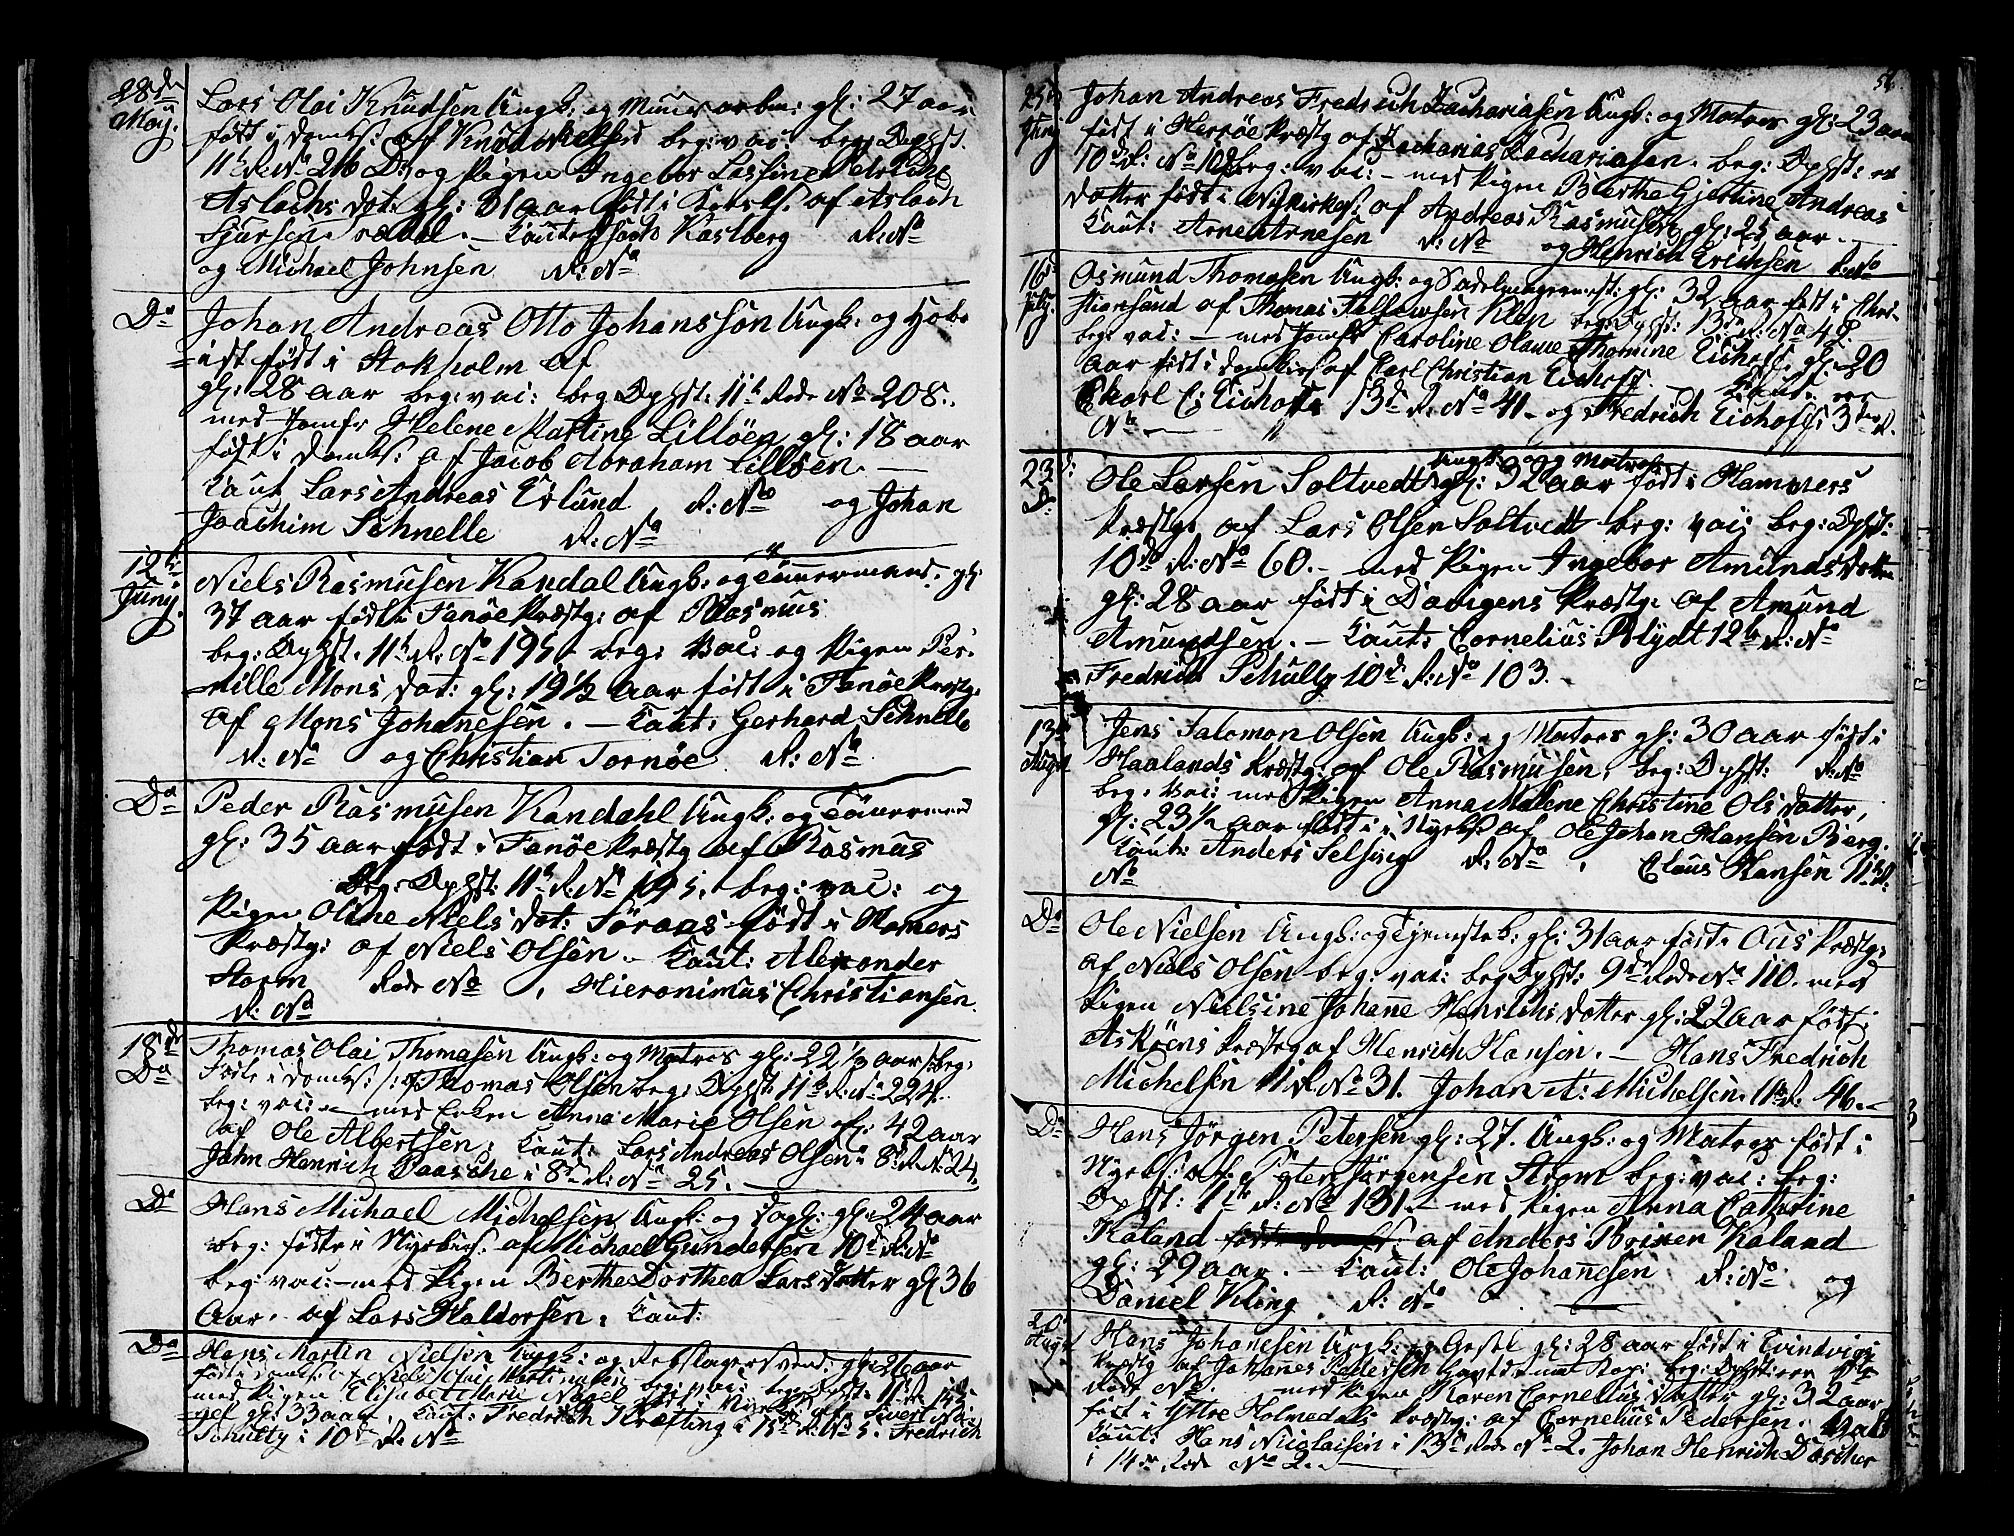 28de
May.
Lars Olai Knudsen Ungk: og Muursvend: gl: 27 aar
født i Domks: af Knud Nielsen beg: vac: beg: Dpst.
11te R: No 216 D: og Pigen Ingebor Lassine
Aslachs Dot: gl: 31 aar født i af Aslach
Sjursen Kaut: Jacob Kastberg R: No
og Michael Johnsen R: No
Do
Johan Andreas Otto Johansson Ungk: og Hobo-
ist født i Stokholm af
gl: 28 aar beg: vac: beg: Dpst: 11te Rode No 208.
med Jomfr Helene Martine Lilløen gl: 18 aar
født i Domks: af Jacob Abraham Lilløen. —
Kaut Lars Andreas Erlund R: No og Johan
Joachim Schnelle R: No
12te
Juny.
Niels Rasmusen Kandal Ungk: og Tømmermand. gl:
37 aar født i Fanøe Præstg: af Rasmus
beg: Dpst. 11te R: No 195. beg: Vac: og Pigen Per-
nille Mons Dot: gl: 19 1/2 aar født i Fanøe Præstg:
af Mons Johanesen. — Kaut: Gerhard Schnelle
R: No og Christian Tornøe R: No
Do
Peder Rasmusen Kandahl Ungk: og Tømmermand
gl: 35 aar født i Fanøe Præstg af Rasmus
beg: Dpst: 11te R: No 195. beg: vac: og
Pigen Oline Niels Dot: Søraas født i Hamers
Præstg: af Niels Olsen. — Kaut: Alexander
Storm Rode No , Hieronimus Christiansen
R: No
18de
Do
Thomas Olai Thomasen Ungk: og Matros gl: 22 1/2 aar beg:
Føde i Domks: af Thomas Olsen beg: Dpst 11te R: No 224.
beg: vac: — med Enken Anna Marie Olsen gl: 42 aar
af Ole Albertsen. Kaut: Lars Andreas Olsen i 8de R No 24.
Jahn Henrich Paasche i 8de R: No 25. —
Do
Hans Michael Michelsen Ungk: og Dagl: gl: 24 aar
beg: føde i Nykirks: af Michael Gundersen 10de R: No
beg: vac: — med Pigen Berthe Dorthea Lars Datter gl: 36
Aar. af Lars Haldorsen. Kaut:
Do
Hans Martin Nielsen Ungk: og Rebslagersvend: gl: 26 aar
født i Domks: af Niels beg: vac: beg: Dpst: 11te R:
med Pigen Elisabet Marie Nagel født i Nykirks: af Sivert Na-
gel gl: 33 aar. Kaut: Fredrich Kræfting i 15de R: No 5. Fredrich
Schultz i 10de R: No
56
25de
Juny
Johan Andreas Fredrich Zachariasen Ungk: og Matros gl: 23 aar
født i Herrøe Præstg af Zacharias Zachariasen. beg: Dpst: er
10de R: No 102 beg: vac: — med Pigen Berthe Gjertine Andreas
Datter født i Nykirkes. af Andreas Rasmusen gl: 25 aar.
Kaut: Arne Arnesen R: No og Henrich Erichsen R: No
16de
July.
Osmund Thomasen Ungk: og Sadelmagermest: gl: 32 aar født i Chri-
stiansand af Thomas Klep beg: Dpst: 13de R: No 48.
beg: vac: — med Jomfr Caroline Olave Thomine Eichoff gl: 20
Aar født i Domkirks af Carl Christian Eichoff. — Kaut: er
Charl C: Eichoff 13de R: No 41 — og Fredrich Eichoff: 3die R.
No —
23de
Do
Ole Larsen Soltvedt Ungk: og Matros gl: 32 aar født i Hammers
Præstg: af Lars Olsen Soltvedt beg: vac: beg: Dpst:
10de R: No 60. — med Pigen Ingebor Amunds Datter
gl: 28 aar født i Davigens Præstg: af Amund
Amundsen. — Kaut: Cornelius Blydt 12te R: No
Fredrich Schultz 10de R: No 103.
13de
Augst
Jens Salomon Olsen Ungk: og Matros gl: 30 aar født i
Haalands Præstg: af Ole Rasmusen. beg: Dpst: R: No
beg: vac: med Pigen Anna Malene Christine Ols Datter,
gl: 23 1/2 aar født i Nyeks: af Ole Johan Hansen Berg.
Kaut: Anders Selsing R: No , Claus Hansen 11te R:
No
Do
Ole Nielsen Ungk: og Tjenestek: gl: 31 aar født i Ous Præstg:
af Niels Olsen beg: vac: beg Dpst: 9de Rode No 110. med
Pigen Nielsine Johanne Henrichs Datter gl: 22 aar født i
Askøens Præstg af Henrich Hansen. — Hans Fredrich
Michelsen 11 R No 31. Johan A: Michelsen. 11te R. 46. —
Do
Hans Jörgen Petersen gl: 27. Ungk: og Matros født i
Nyeks: af Peter Jörgensen Strom beg: vac: beg:
Dpst: 1ste R: No 131. — med Pigen Anna Cathrine
Kaland af Anders Brinen Kaland
gl: 29 aar. — Kaut: Ole Johannesen R: No og
Daniel Kling R: No
20de
Augst
Hans Johannesen Ungk: og Gesel gl: 28 aar født i Evindvigs
Præstg af Johannes Pedersen beg: Dpst: er
Rode No. med Pigen Karen Cornelius Datter gl: 32 aar
født i Yttre Holmedals Præstg: af Cornelius Pedersen.
Kaut: Hans Nicolaisen i 13de Rode No 2. Johan Henrich Döscher
i 14de Rode No 2. —